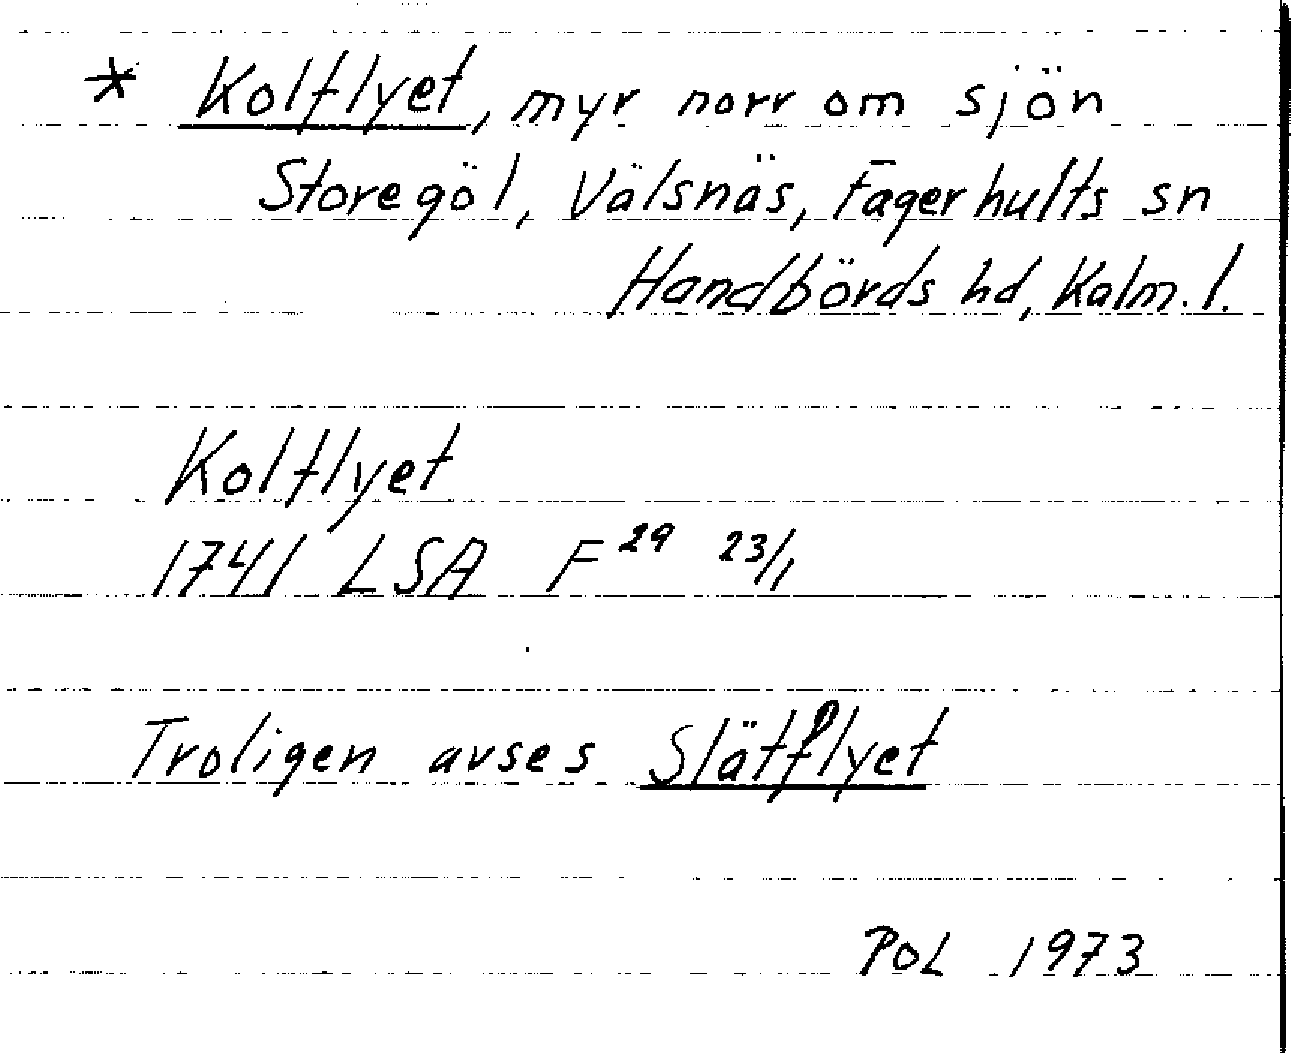 * Kolflyet, myr norr om sjön
Storegöl, Välsnäs, Fagerhults sn
Handbörds hd, Kalm. l.
Kolflyet
1741 LSA F 29 23/1
Troligen avses Slätflyet
POL 1973